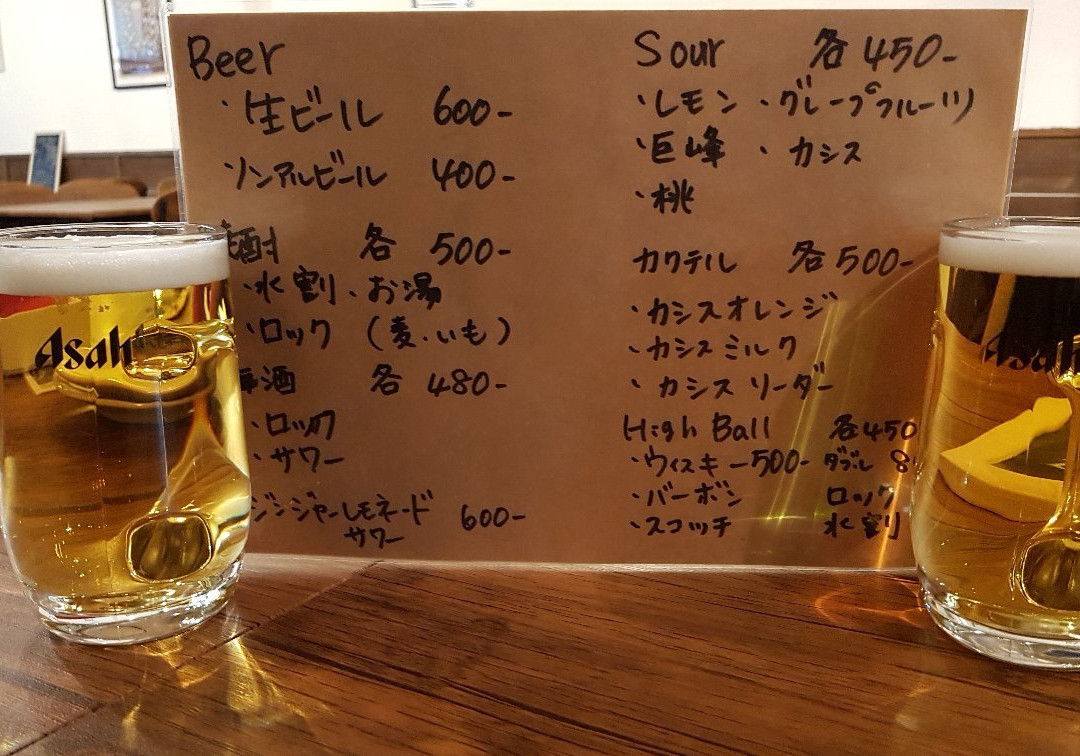 Beer
・生ビール 600-
ソンアルビール 400-
酎 各 500-
・水割・お湯
・ロック (麦・いも)
酒 各 480-
・ロック
・サワー
ジンジャーレモネード 600-
サワー
Sour 各450-
・レモン・グレープフルーツ
・巨峰・カシス
・桃
カクテル 各500-
・カシスオレンジ
・カシスミルク
・カシスソーダー
High Ball 各450
・ウィスキー500- ダブル 8
・バーボン ロック
・スコッチ 水割
Asahi
Asahi